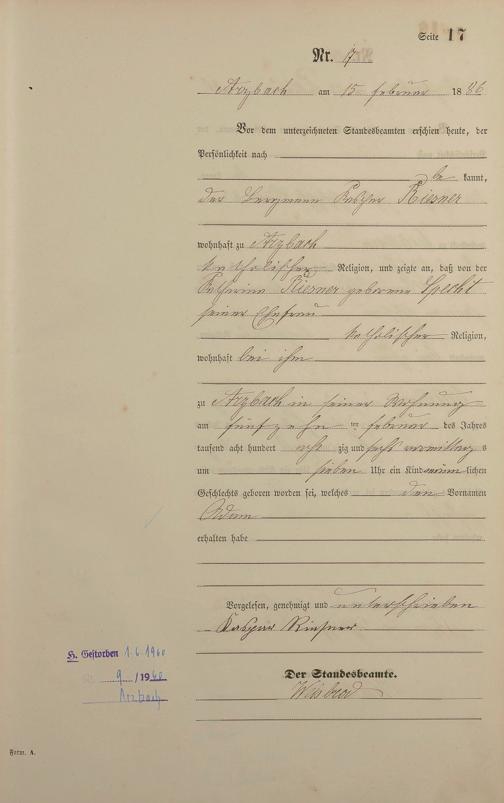 Seite 17
Nr. 17
Arzbach am 15 Februar 1886
Vor dem unterzeichneten Standesbeamten erschien heute, der
Persönlichkeit nach
be kannt,
der Bergmann Riesner
wohnhaft zu Arzbach
katholischer Religion, und zeigte an, daß von der
Katharina Riesner geborene Specht
seiner Ehefrau
katholischer Religion,
wohnhaft bei ihm
zu Arzbach in seiner Wohnung
am fünfzehn ten Februar des Jahres
tausend acht hundert acht zig und sechs vormittag s
um sieben Uhr ein Kind männ lichen
Geschlechts geboren worden sei, welches den Vornamen
Adam
erhalten habe
Vorgelesen, genehmigt und unterschrieben
Kaspar Riesner
Der Standesbeamte.
Weisbrod
H. Gestorben 1.6.1960
9 /1960
Arzbach
Form. A.